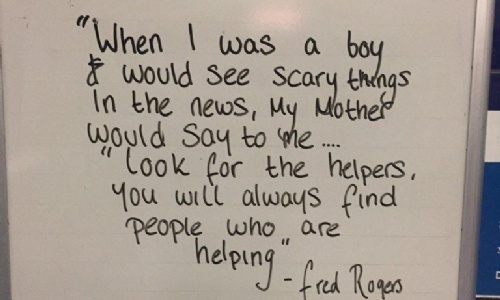 "When I was a boy
& would see scary things
In the news, My Mother
would Say to me ....
"look for the helpers,
you will always find
people who are
helping"
- fred Rogers